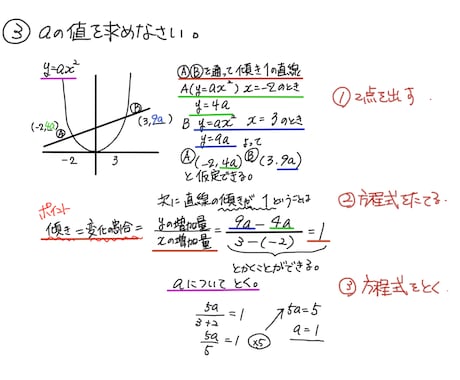 ③ aの値を求めなさい。
y=ax²
ⒶⒷを通って傾き1の直線
A(y=ax²) x=-2のとき
y=4a
B y=ax² x=3のとき
y=9a よって
Ⓐ(-2,4a) Ⓑ(3,9a)
と仮定できる。
(-2,4a) Ⓐ
Ⓑ
(3,9a)
-2 3
① 2点を出す.
次に直線の傾きが1ということは
ポイント
傾き=変化の割合= yの増加量/xの増加量 = 9a-4a/3-(-2) = 1
とかくことができる。
② 方程式をたてる.
aについてとく。
③ 方程式をとく.
5a/3+2 = 1
5a/5 = 1 ×5
5a=5
a=1